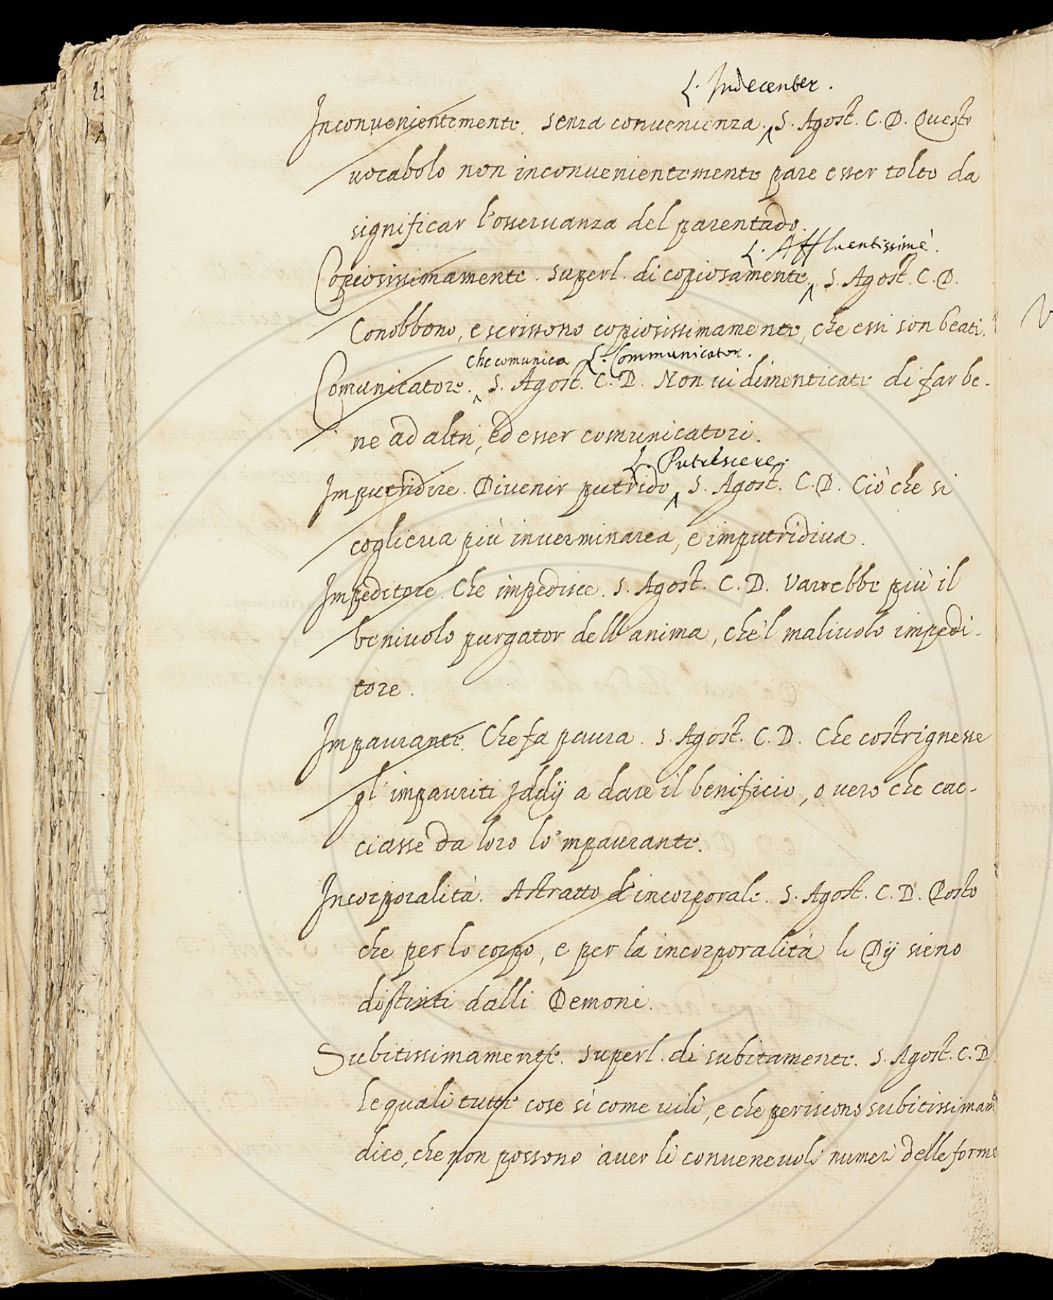 L. Indecenter.
Inconuenientemente. senza conuenienza. S. Agost. C. D. Questo
uocabolo non inconuenientemente pare esser tolto da
significar l'osseruanza del parentado.
L. Affluentissimè.
Copiosissimamente. superl. di copiosamente. S. Agost. C. D.
Conobbono, e scrissono copiosissimamente, che essi son beati.
che comunica L. Communicator.
Comunicatore. S. Agost. C. D. Non ui dimenticate di far be-
ne ad altri, ed esser comunicatori.
L. Putrescere.
Imputridire. Diuenir putrido S. Agost. C. D. Ciò che si
coglieua più inuerminarea, e imputridiua.
Impeditore. Che impedisce. S. Agost. C. D. Varrebbe più il
beniuolo purgator dell'anima, che'l maliuolo impedi-
tore.
Impaurante. Che fa paura. S. Agost. C. D. Che costrignesse
gl'impauriti Iddij a dare il benificio, o uero che cac-
ciasse da loro lo'mpaurante.
Incorporalità. Astratto d'incorporale. S. Agost. C. D. Posto
che per lo corpo, e per la incorporalità li Dij sieno
distinti dalli Demoni.
Subitissimamente. superl. di subitamente. S. Agost. C. D
le quali tutte cose sì come uili, e che periscono subitissimam
dice, che non possono auer li conueneuoli numeri delle forme